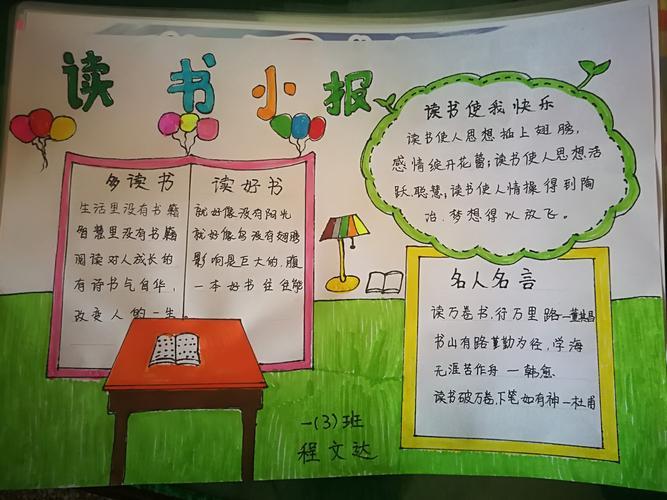 读书小报
多读书
生活里没有书籍
智慧里没有书籍
阅读对人成长的
有诗书气自华,
改变人的一生。
读好书
就好像没有阳光
就好像鸟没有翅膀
影响是巨大的,腹
一本好书往往能
读书使我快乐
读书使人思想插上翅膀,
感情绽开花蕾;读书使人思想活
跃聪慧;读书使人情操得到陶
冶、梦想得以放飞。
名人名言
读万卷书,行万里路一董其昌
书山有路勤为径,学海
无涯苦作舟一韩愈
读书破万卷,下笔如有神一杜甫
一(3)班
程文达